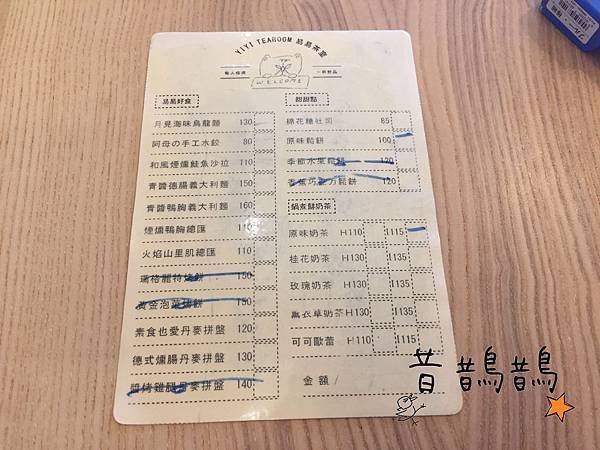 YIYI TEAROOM 易易茶室
每人低消 一杯飲品
WELCOME
易易好食
月見海味烏龍麵 130
阿母の手工水餃 80
和風煙燻鮭魚沙拉 110
青醬德腸義大利麵 150
青醬鴨胸義大利麵 160
煙燻鴨胸總匯 110
火焰山里肌總匯 110
瑪格麗特烤餅 150
黃金泡菜烤餅 150
素食也愛丹麥拼盤 120
德式燻腸丹麥拼盤 130
醬烤雞腿丹麥拼盤 140
甜甜點
棉花糖吐司 85
原味鬆餅 100
季節水果鬆餅 120
香蕉巧克力鬆餅 120
鍋煮鮮奶茶
原味奶茶 H110 I115
桂花奶茶 H130 I135
玫瑰奶茶 H130 I135
薰衣草奶茶 H130 I135
可可歐蕾 H130 I135
金額 /
昔鵲鵲